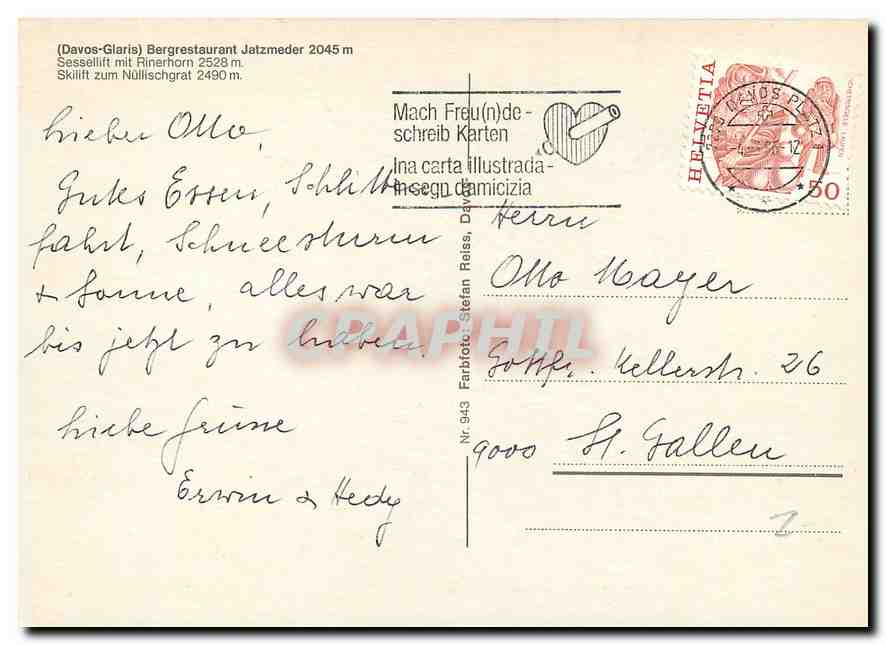 (Davos-Glaris) Bergrestaurant Jatzmeder 2045 m
Sessellift mit Rinerhorn 2528 m.
Skilift zum Nüllischgrat 2490 m.
Lieber Otto,
Gutes Essen, Schlitten
fahrt, Schneesturm
& Sonne, alles war
bis jetzt zu haben.
Liebe Grüsse
Erwin & Hedy
Mach Freu(n)de-
schreib Karten
Ina carta illustrada-
in segn d'amicizia
HELVETIA
50
DAVOS PLATZ 1
Nr. 943 Farbfoto: Stefan Reiss, Davos
Herrn
Otto Mayer
Gottfr. Kellerstr. 26
9000 St. Gallen
1
CPAPHIL